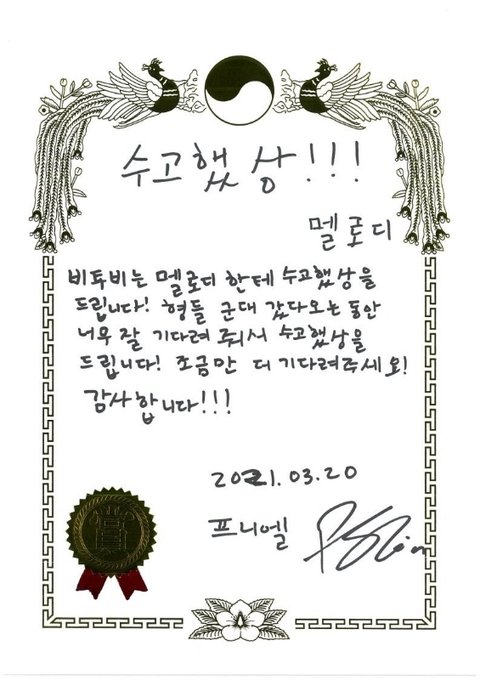 수고했상!!!
멜로디
비투비는 멜로디 한테 수고했상을
드립니다! 형들 군대 갔다오는 동안
너무 잘 기다려 줘서 수고했상을
드립니다! 조금만 더 기다려주세요!
감사합니다!!!
2021.03.20
프니엘